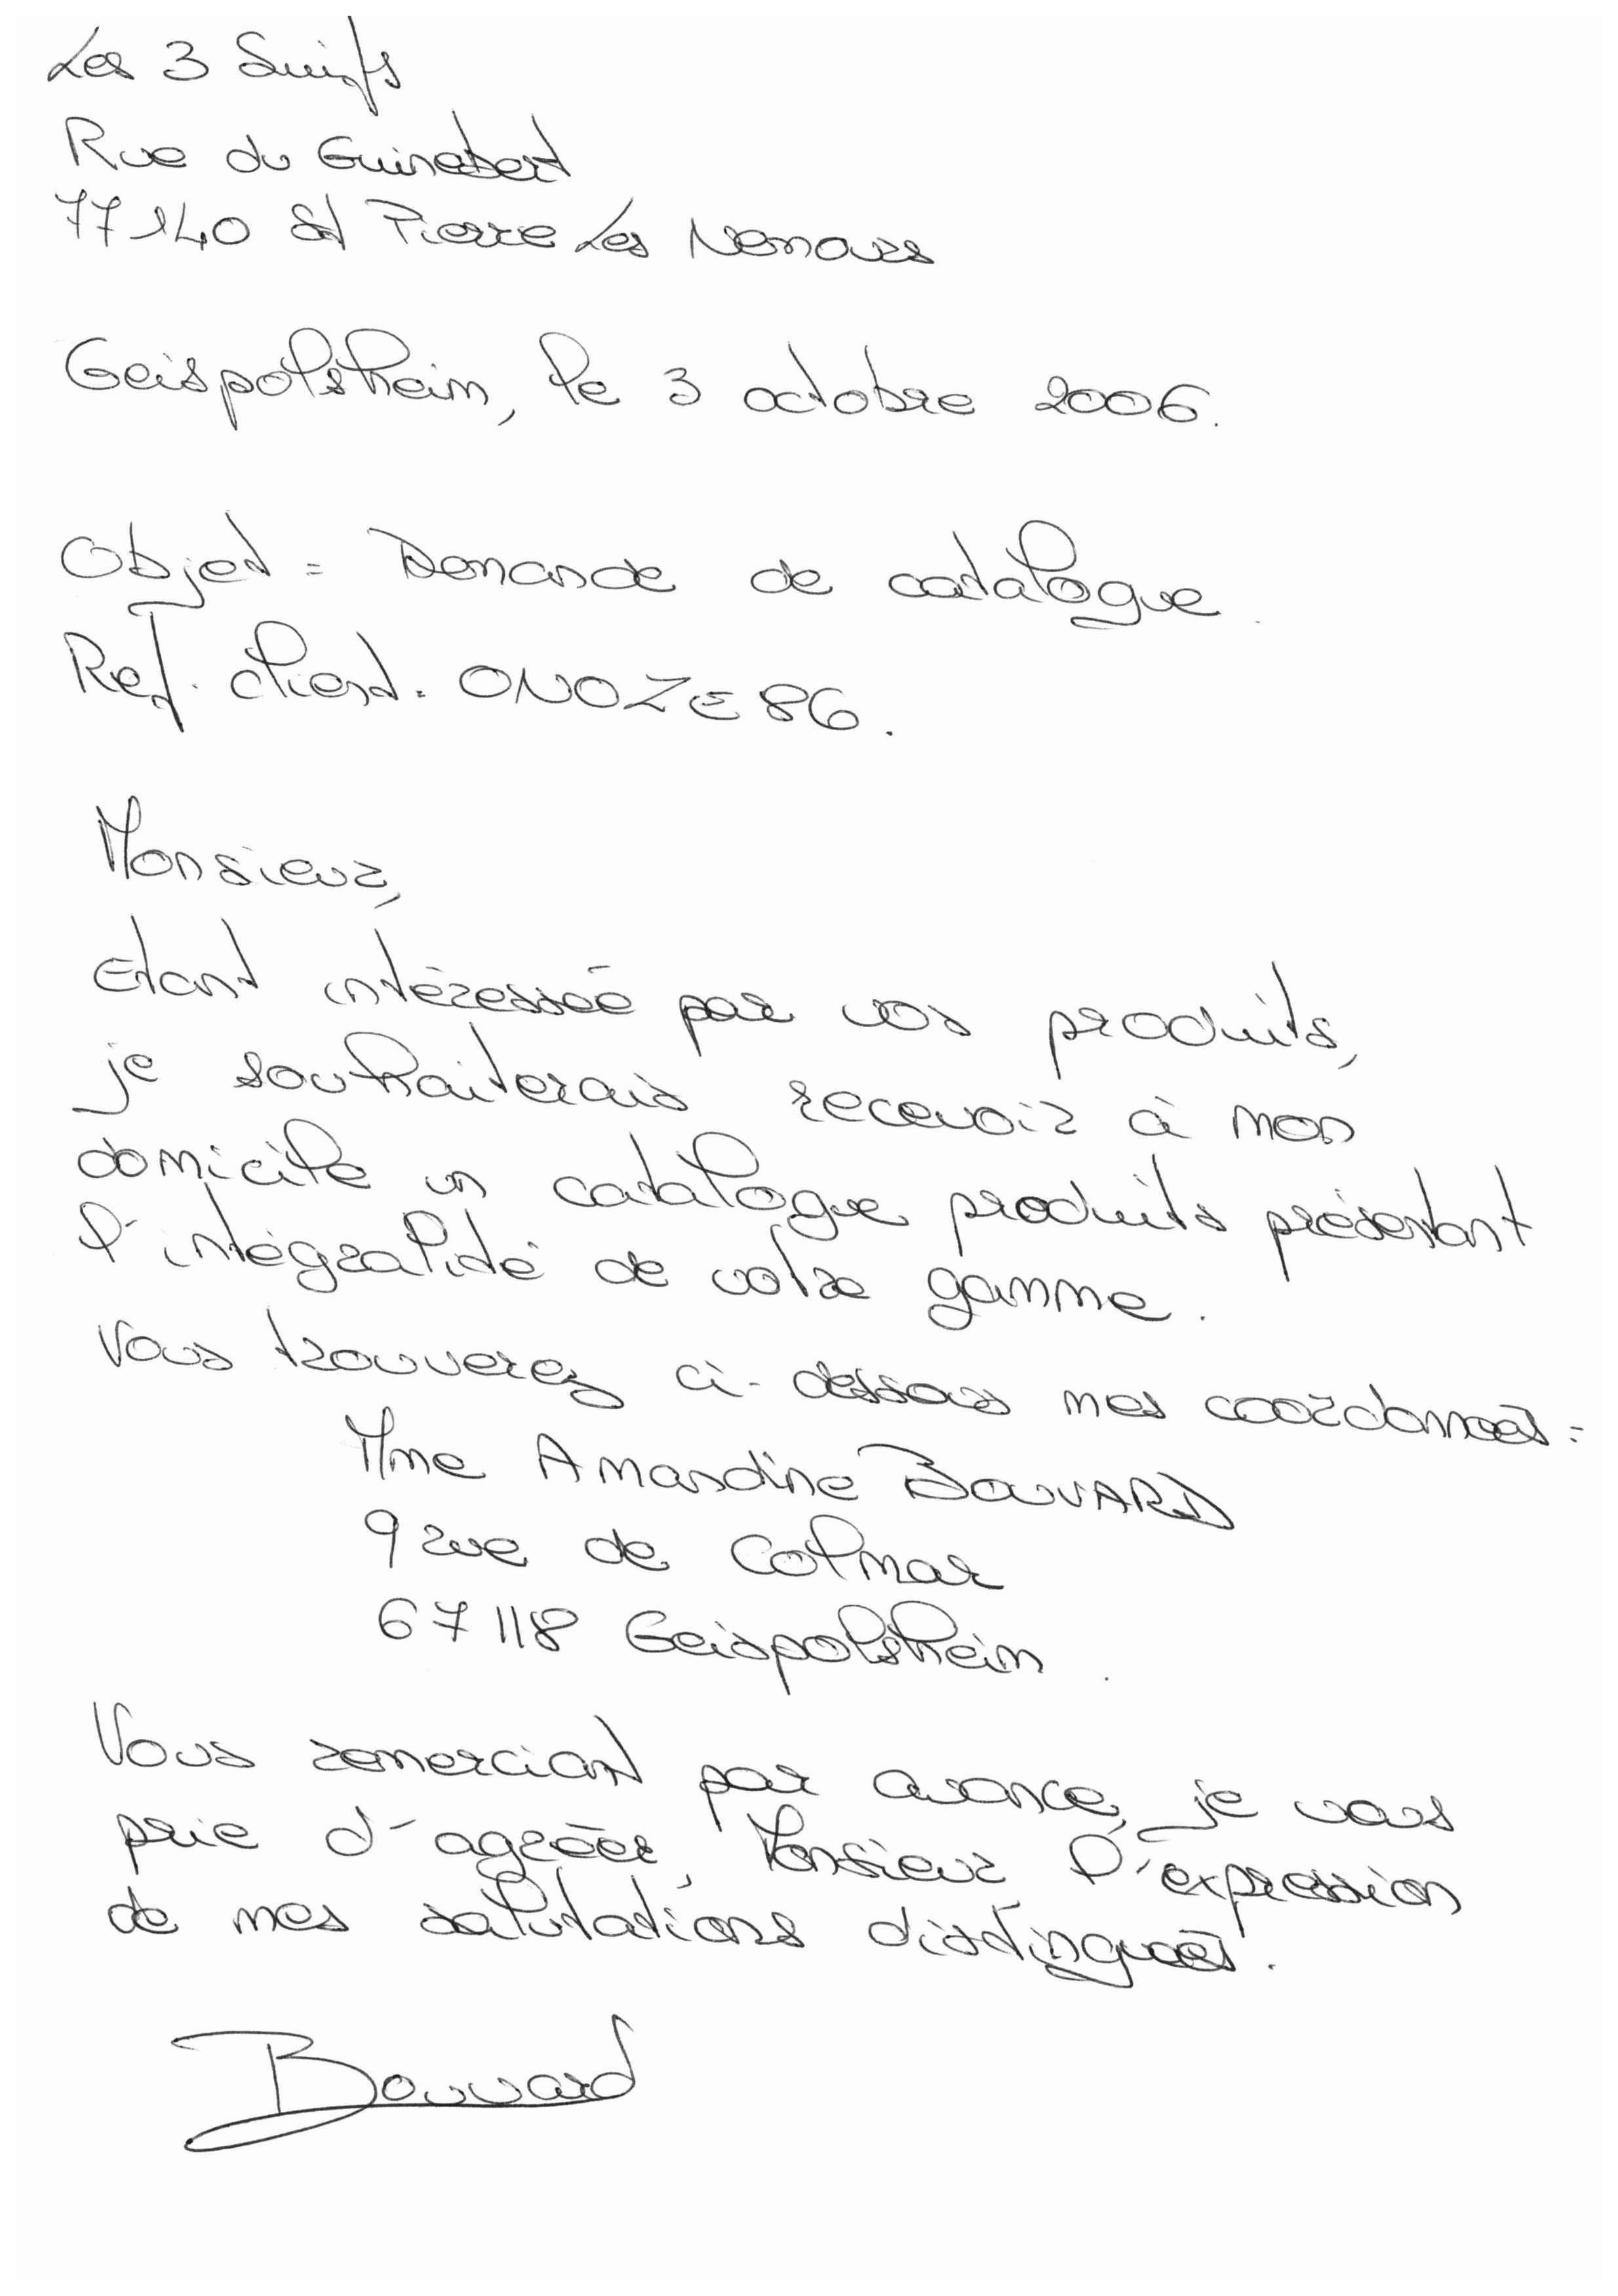 Les 3 Suisfs
Rue du Guinebert
77140 St Pierre Les Nemours
Geispolsheim, le 3 octobre 2006.
Objet : Demande de catalogue.
Ref. client : ONOZE86.
Monsieur,
Etant intéressée par vos produits,
je souhaiterais recevoir à mon
domicile un catalogue produits présentant
l'intégralité de votre gamme.
Vous trouverez ci-dessous mes coordonnées :
Mme Amandine BouVARD
9 rue de Colmar
67118 Geispolsheim.
Vous remerciant par avance, je vous
prie d'agréer, Monsieur, l'expression
de mes salutations distinguées.
Bouvard